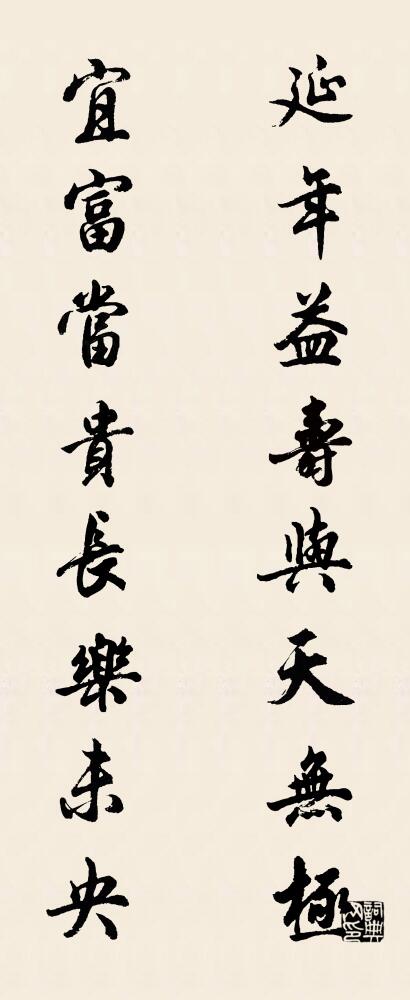 延年益壽與天無極
宜富當貴長樂未央